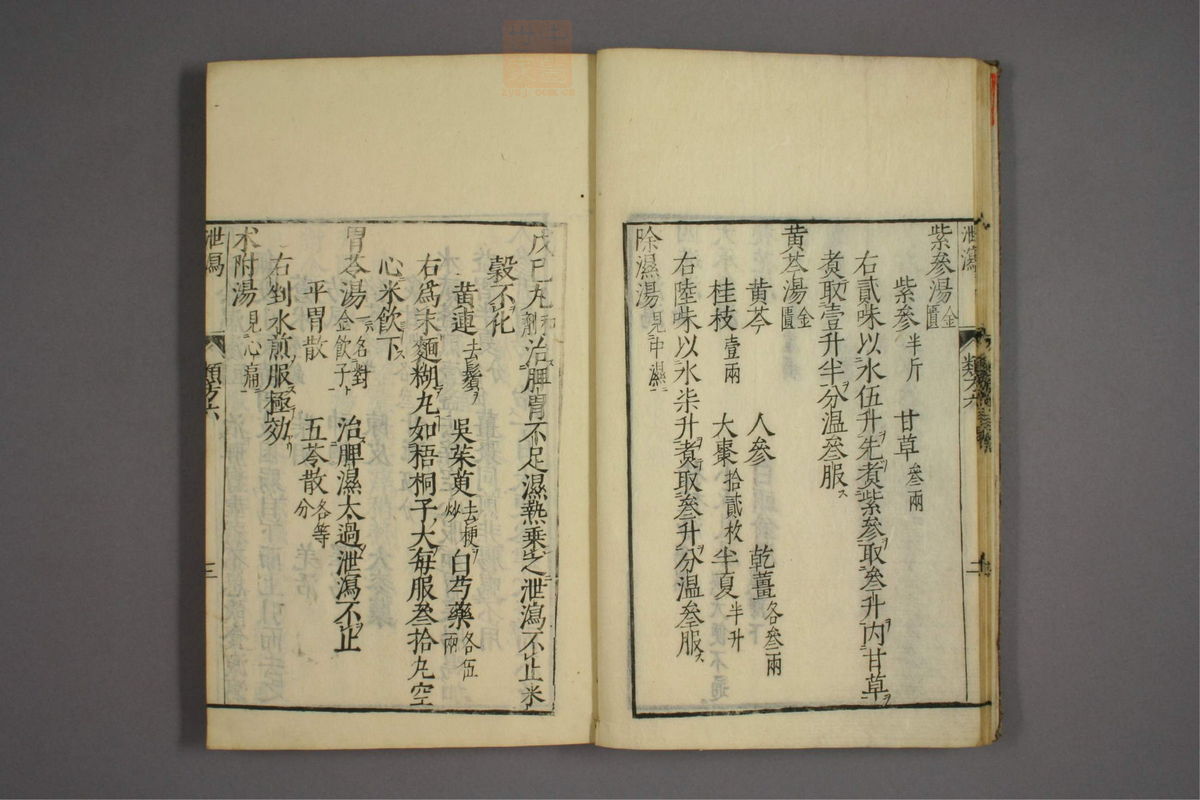 泄瀉 類方六 二
紫參湯金匱
紫參半斤 甘草叄兩
右貳味以水伍升先煑紫參取叄升内甘草
煑取壹升半分温叄服
黄芩湯金匱
黄芩 人參 乾薑各叄兩
桂枝壹兩 大棗拾貳枚 半夏半升
右陸味以水柒升煑取叄升分温叄服
除濕湯見中濕
戊己丸和劑治脾胃不足濕熱乗之泄瀉不止米
穀不化
黄連去鬚 吳茱萸去梗炒 白芍藥各伍兩
右爲末麵糊丸如梧桐子大每服叄拾丸空
心米飲下
胃苓湯一名對金飲子 治脾濕太過泄瀉不止
平胃散 五苓散各等分
右剉水煎服極効
术附湯見心痛
泄瀉 類方六 三